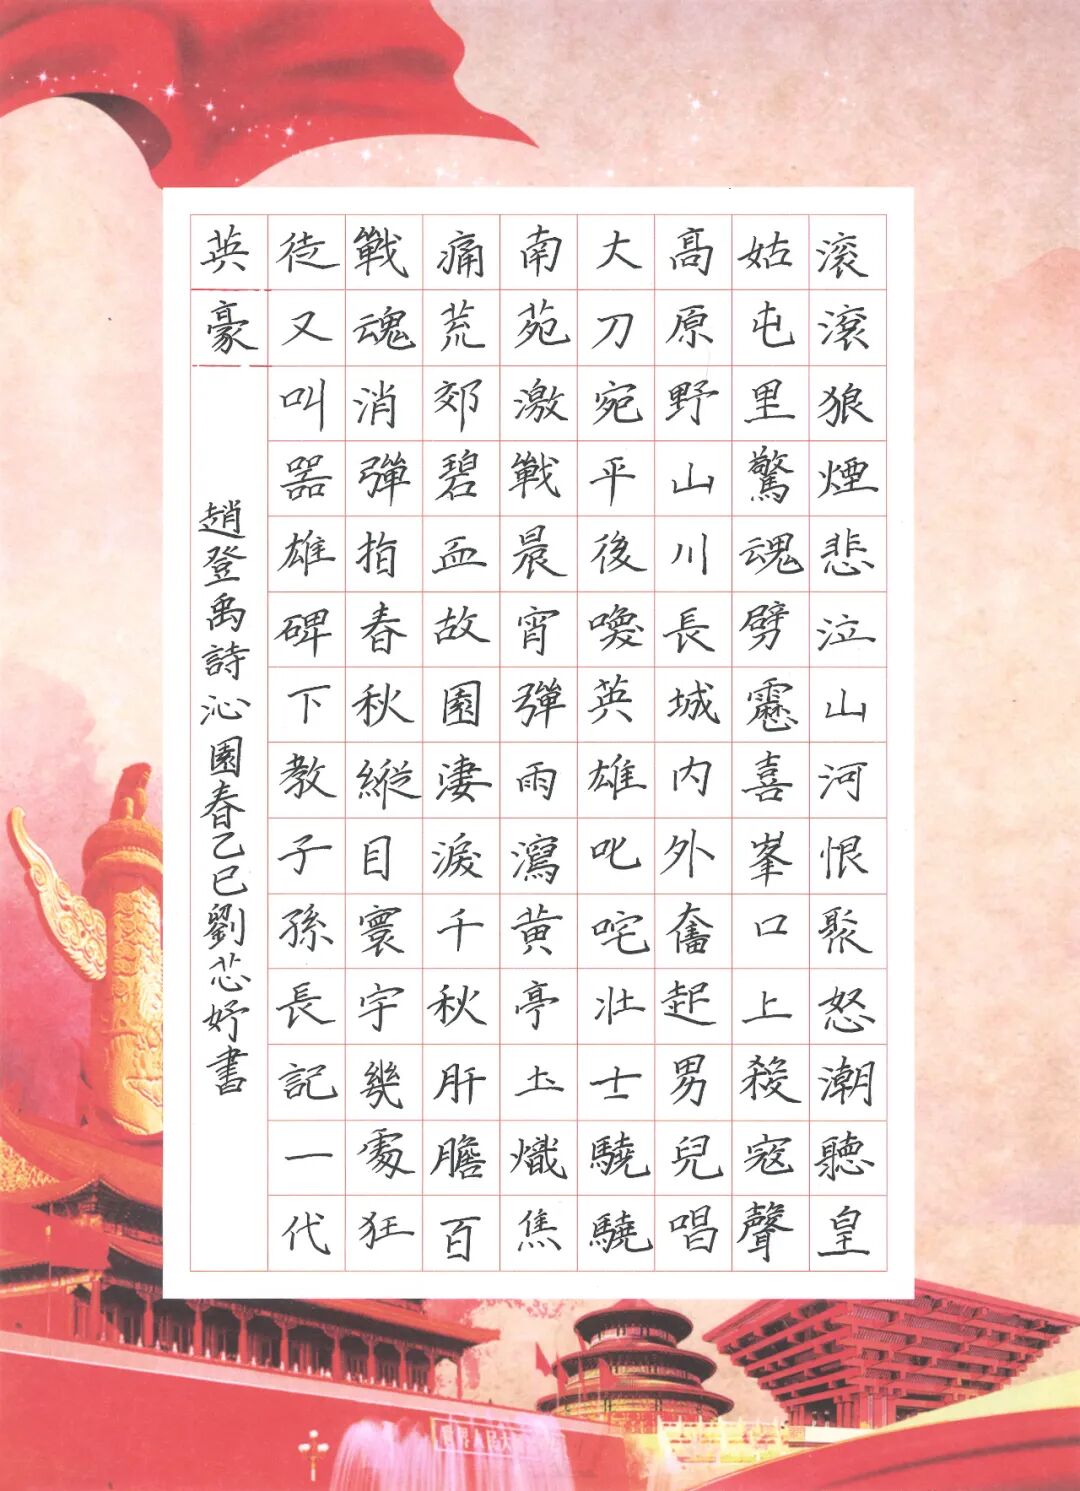 滚滚狼煙悲泣山河恨聚怒潮聽皇
姑屯里驚魂劈靂喜峯口上殺寇聲
高原野山川長城内外奮起男兒唱
大刀宛平後喚英雄叱咤壯士驍驍
南苑激戰晨宵彈雨瀉黄亭土熾焦
痛荒郊碧血故園淒淚千秋肝膽百
戰魂消彈指春秋縱目寰宇幾處狂
徒又叫囂雄碑下教子孫長記一代
英豪
趙登禹詩沁園春乙巳劉芯妤書